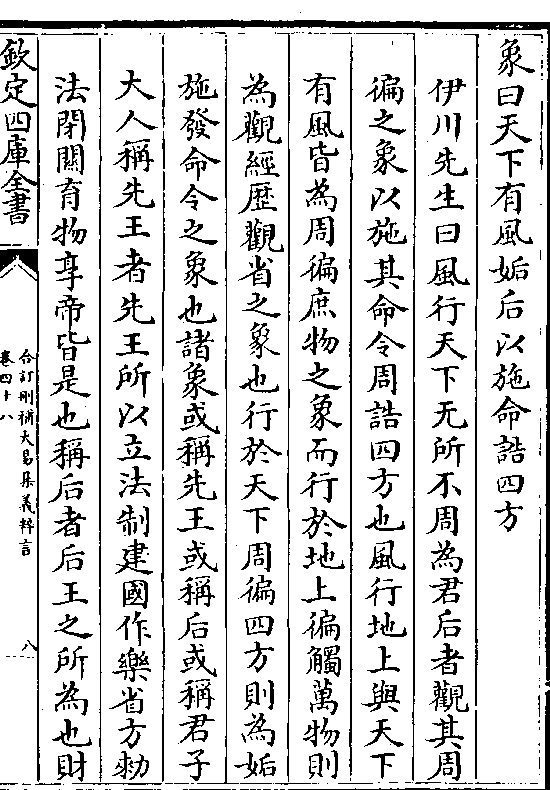 象曰天下有風姤后以施命誥四方
伊川先生曰風行天下无所不周為君后者觀其周
徧之象以施其命令周誥四方也風行地上與天下
有風皆為周徧庶物之象而行於地上徧觸萬物則
為觀經歴觀省之象也行於天下周徧四方則為姤
施發命令之象也諸象或稱先王或稱后或稱君子
大人稱先王者先王所以立法制建國作樂省方勅
法閉關育物享帝皆是也稱后者后王之所為也財
欽定四庫全書
合訂刪補大易集義粹言
卷四十八
八